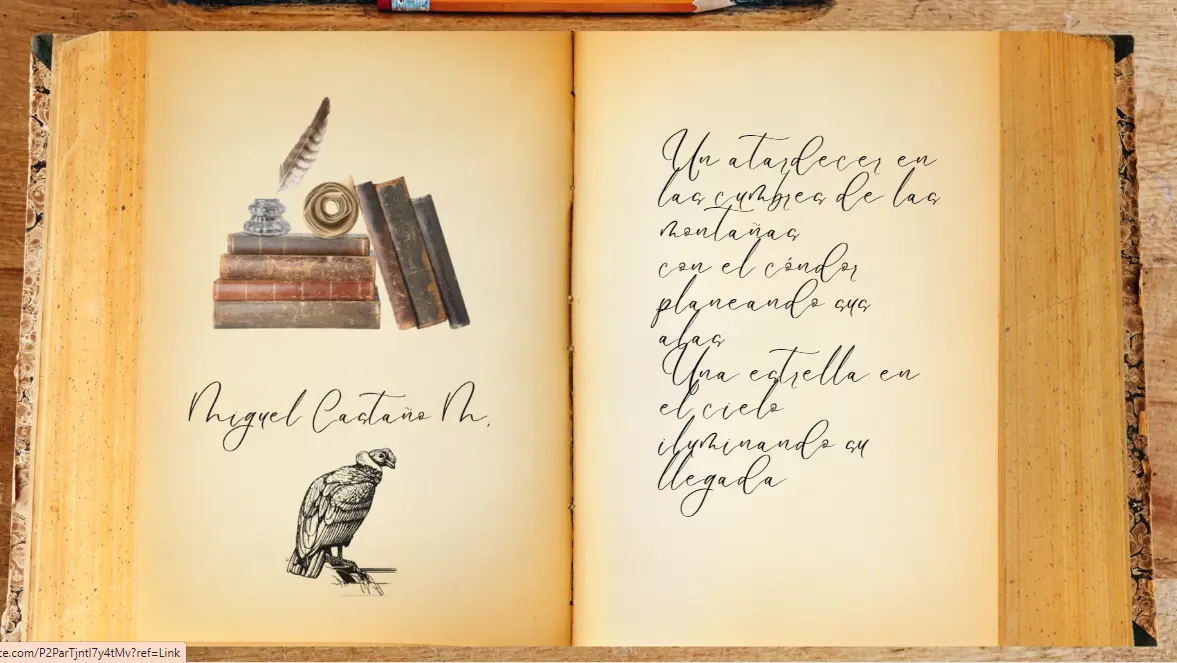 Miguel Castaño M.
Un atardecer en
las cumbres de las
montañas
con el cóndor
planeando sus
alas
Una estrella en
el cielo
iluminando su
llegada
ce.com/P2ParTjntl7y4tMv?ref=Link